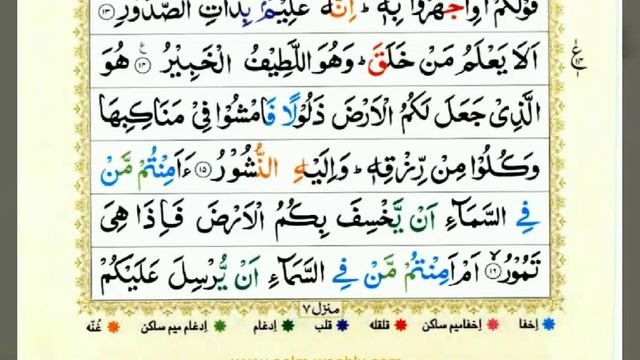 قَوْلَكُمْ اَوِاجْهَرُوْا بِهٖ ؕ اِنَّهٗ عَلِيْمٌۢ بِذَاتِ الصُّدُوْرِ ۝۱۳
اَلَا يَعْلَمُ مَنْ خَلَقَ ؕ وَهُوَ اللَّطِيْفُ الْخَبِيْرُ ۝۱۴ هُوَ
الَّذِيْ جَعَلَ لَكُمُ الْاَرْضَ ذَلُوْلًا فَامْشُوْا فِيْ مَنَاكِبِهَا
وَكُلُوْا مِنْ رِّزْقِهٖ ؕ وَاِلَيْهِ النُّشُوْرُ ۝۱۵ ءَاَمِنْتُمْ مَّنْ
فِي السَّمَآءِ اَنْ يَّخْسِفَ بِكُمُ الْاَرْضَ فَاِذَا هِيَ
تَمُوْرُ ۝۱۶ اَمْ اَمِنْتُمْ مَّنْ فِي السَّمَآءِ اَنْ يُّرْسِلَ عَلَيْكُمْ
منزل ۷
اخفا اخفامیم ساکن قلقله قلب ادغام ادغام میم ساکن غنّه